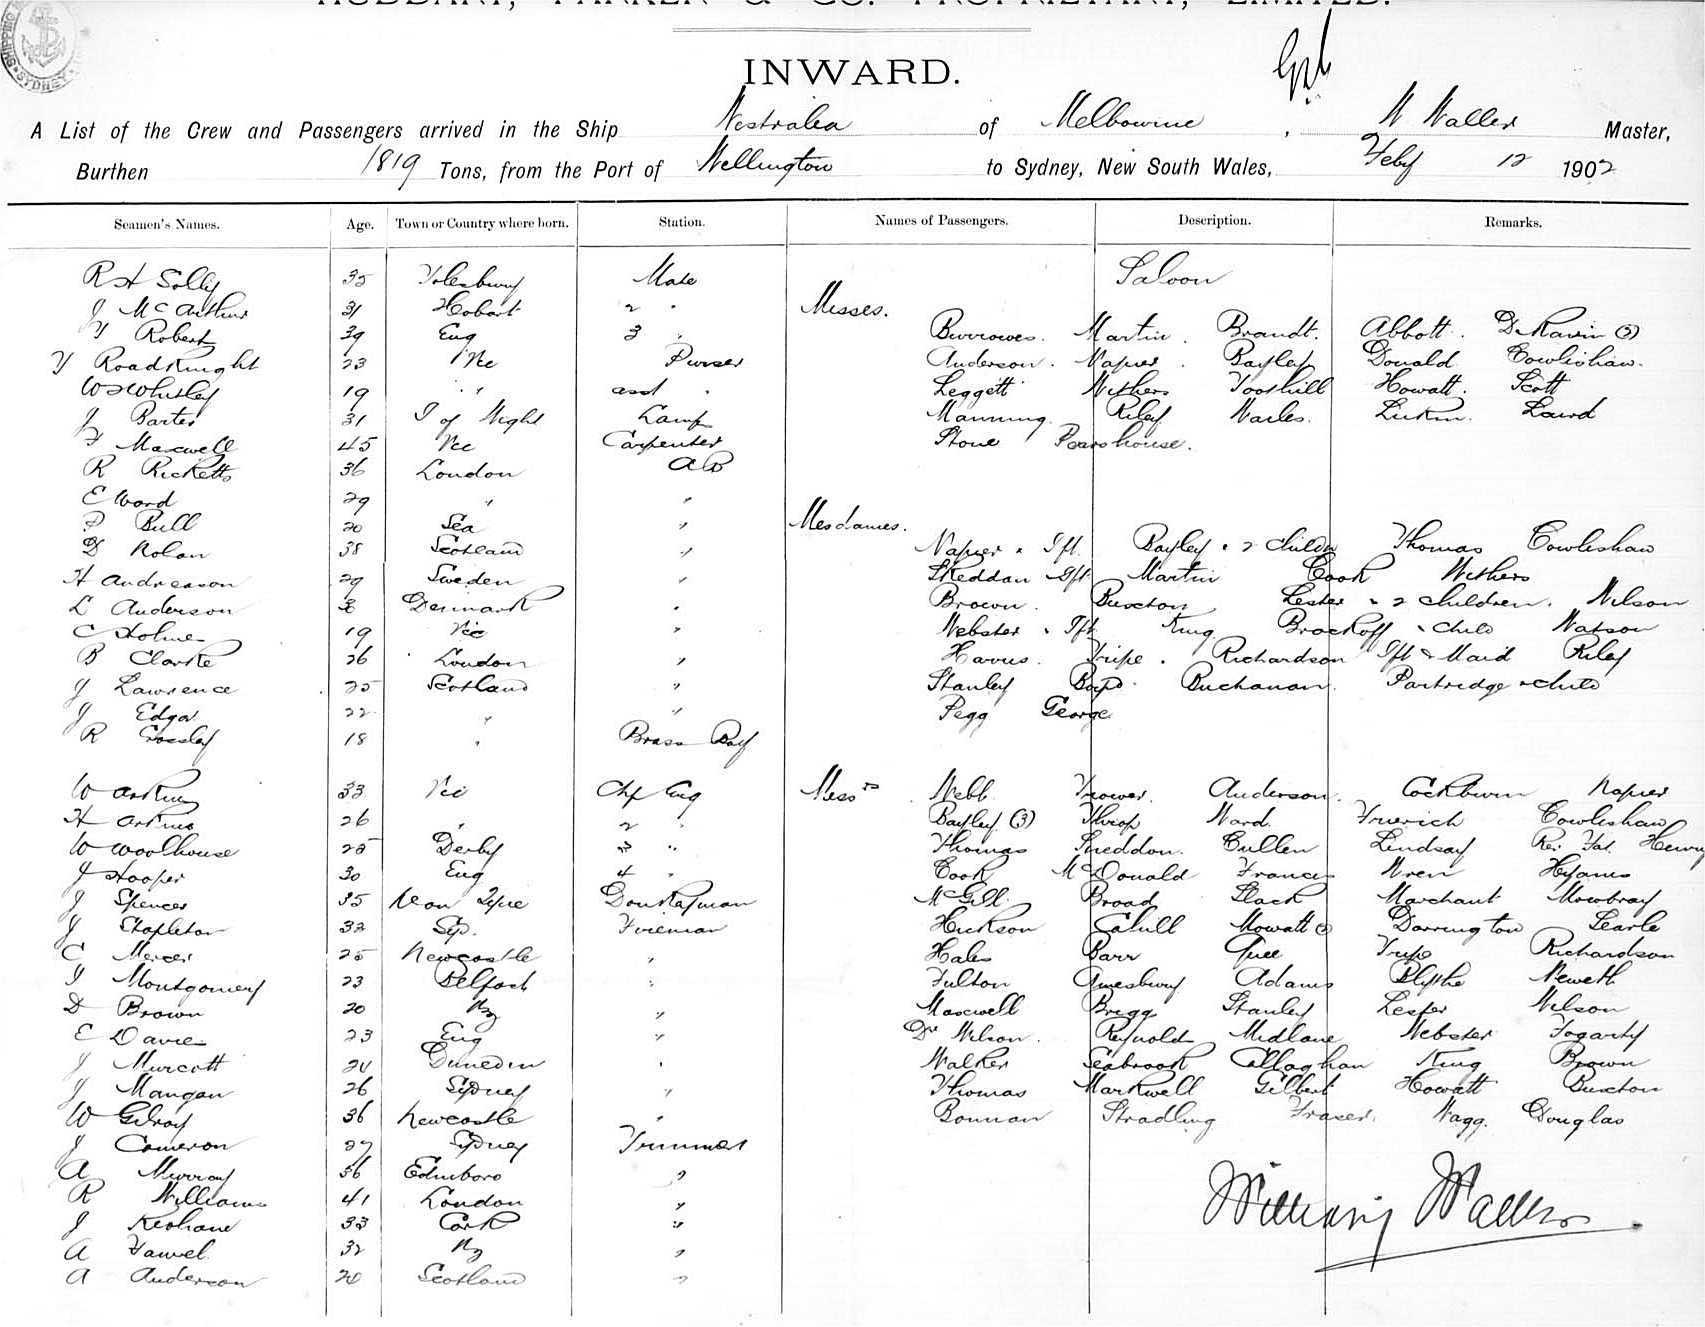 HUDDART, PARKER & CO. PROPRIETARY, LIMITED.
SHIPPING
SYDNEY
INWARD.
A List of the Crew and Passengers arrived in the Ship Westralia of Melbourne, W Waller Master,
Burthen 1819 Tons, from the Port of Wellington to Sydney, New South Wales, Feby 12 1902
Seamen's Names. Age. Town or Country where born. Station. Names of Passengers. Description. Remarks.
R H Solly 35 Mate
J McArthur 31 Hobart 2 "
Robert 39 Eng 3 "
Roadknight 23 Vic Purser
19 " " asst "
J Barter 31 I of Wight Lamp
F Maxwell 45 Vic Carpenter
R Ricketts 36 London AB
E Ward 29 " "
Bull 20 Sea "
D Nolan 38 Scotland "
H Andreason 29 Sweden "
L Anderson Denmark "
C Holmes 19 Vic "
B Clarke 26 London "
J Lawrence 25 Scotland "
J Edgar 22 " "
R Crossley 18 " Brass Boy
W Arkins 33 Vic Chf Eng
H Arkins 26 " 2 "
W Woolhouse 25 Derby 3 "
J Hooper 30 Eng 4 "
J Spencer 35 Donkeyman
J Stapleton 32 Syd. Fireman
C Mercer 25 Newcastle "
Montgomery 23 Belfast "
D Brown 20 NZ "
E Davies 23 Eng "
J Murcott 24 Dunedin "
J Mangan 26 Sydney "
W Gilroy 36 Newcastle "
J Cameron 27 Sydney Trimmer
A Murray 36 Edinboro "
R Williams 41 London "
J Keohane 33 Cork "
A 32 NZ "
A Anderson 20 Scotland "
Saloon
Misses.
Burrowes. Martin. Brandt. Abbott. (3)
Anderson. Napier. Bayley Donald Cowlishaw.
Leggett Withers Toothill Howatt. Scott
Manning Riley Wailes. Laird
Stone Pearshouse.
Mesdames.
Napier & Ift. Bayley & 2 Childn Thomas Cowlishaw
Skeddan & Ift Martin Cook Withers
Brown. Buxton Lester & 2 children. Wilson
Webster & Ift King Brockoff & child Watson
Harris. Tripe. Richardson Ift & Maid Riley
Stanley Boyd Buchanan. Partridge & child
Pegg George
Messrs
Webb Trower. Anderson. Cockburn Napier
Bayley (3) Throp Ward Cowlishaw
Thomas Sneddon. Cullen Lindsay Rev. Fat. Henry
Cook McDonald Francis Wren Hyams
McGill. Broad Slack Marchant Mowbray
Hickson Cahill Mowatt Darrington Searle
Hales Barr Quee Tripe Richardson
Fulton Amesbury Adams Blythe Neweth
Maxwell Brigg Stanley Lester Wilson
Dr Wilson. Reynolds Midlane Webster Fogarty
Walker Seabrook Callaghan King Brown
Thomas Markwell Gilbert Howatt Buxton
Bonnan Stradling Fraser. Wagg. Douglas
William Waller